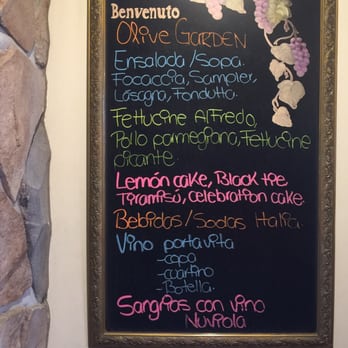 Benvenuto
Olive GARDEN
Ensalada/Sopa.
Focaccia, Sampler,
Lasagna, Fondutta.
Fettucine Alfredo,
Pollo parmegiana, Fettucine
picante.
Lemón cake, Black tie
Tiramisú, celebration cake.
Bebidas/Sodas Italia.
Vino portavita
-copa
-cuartino
-Botella.
Sangrias con vino
Nuviola